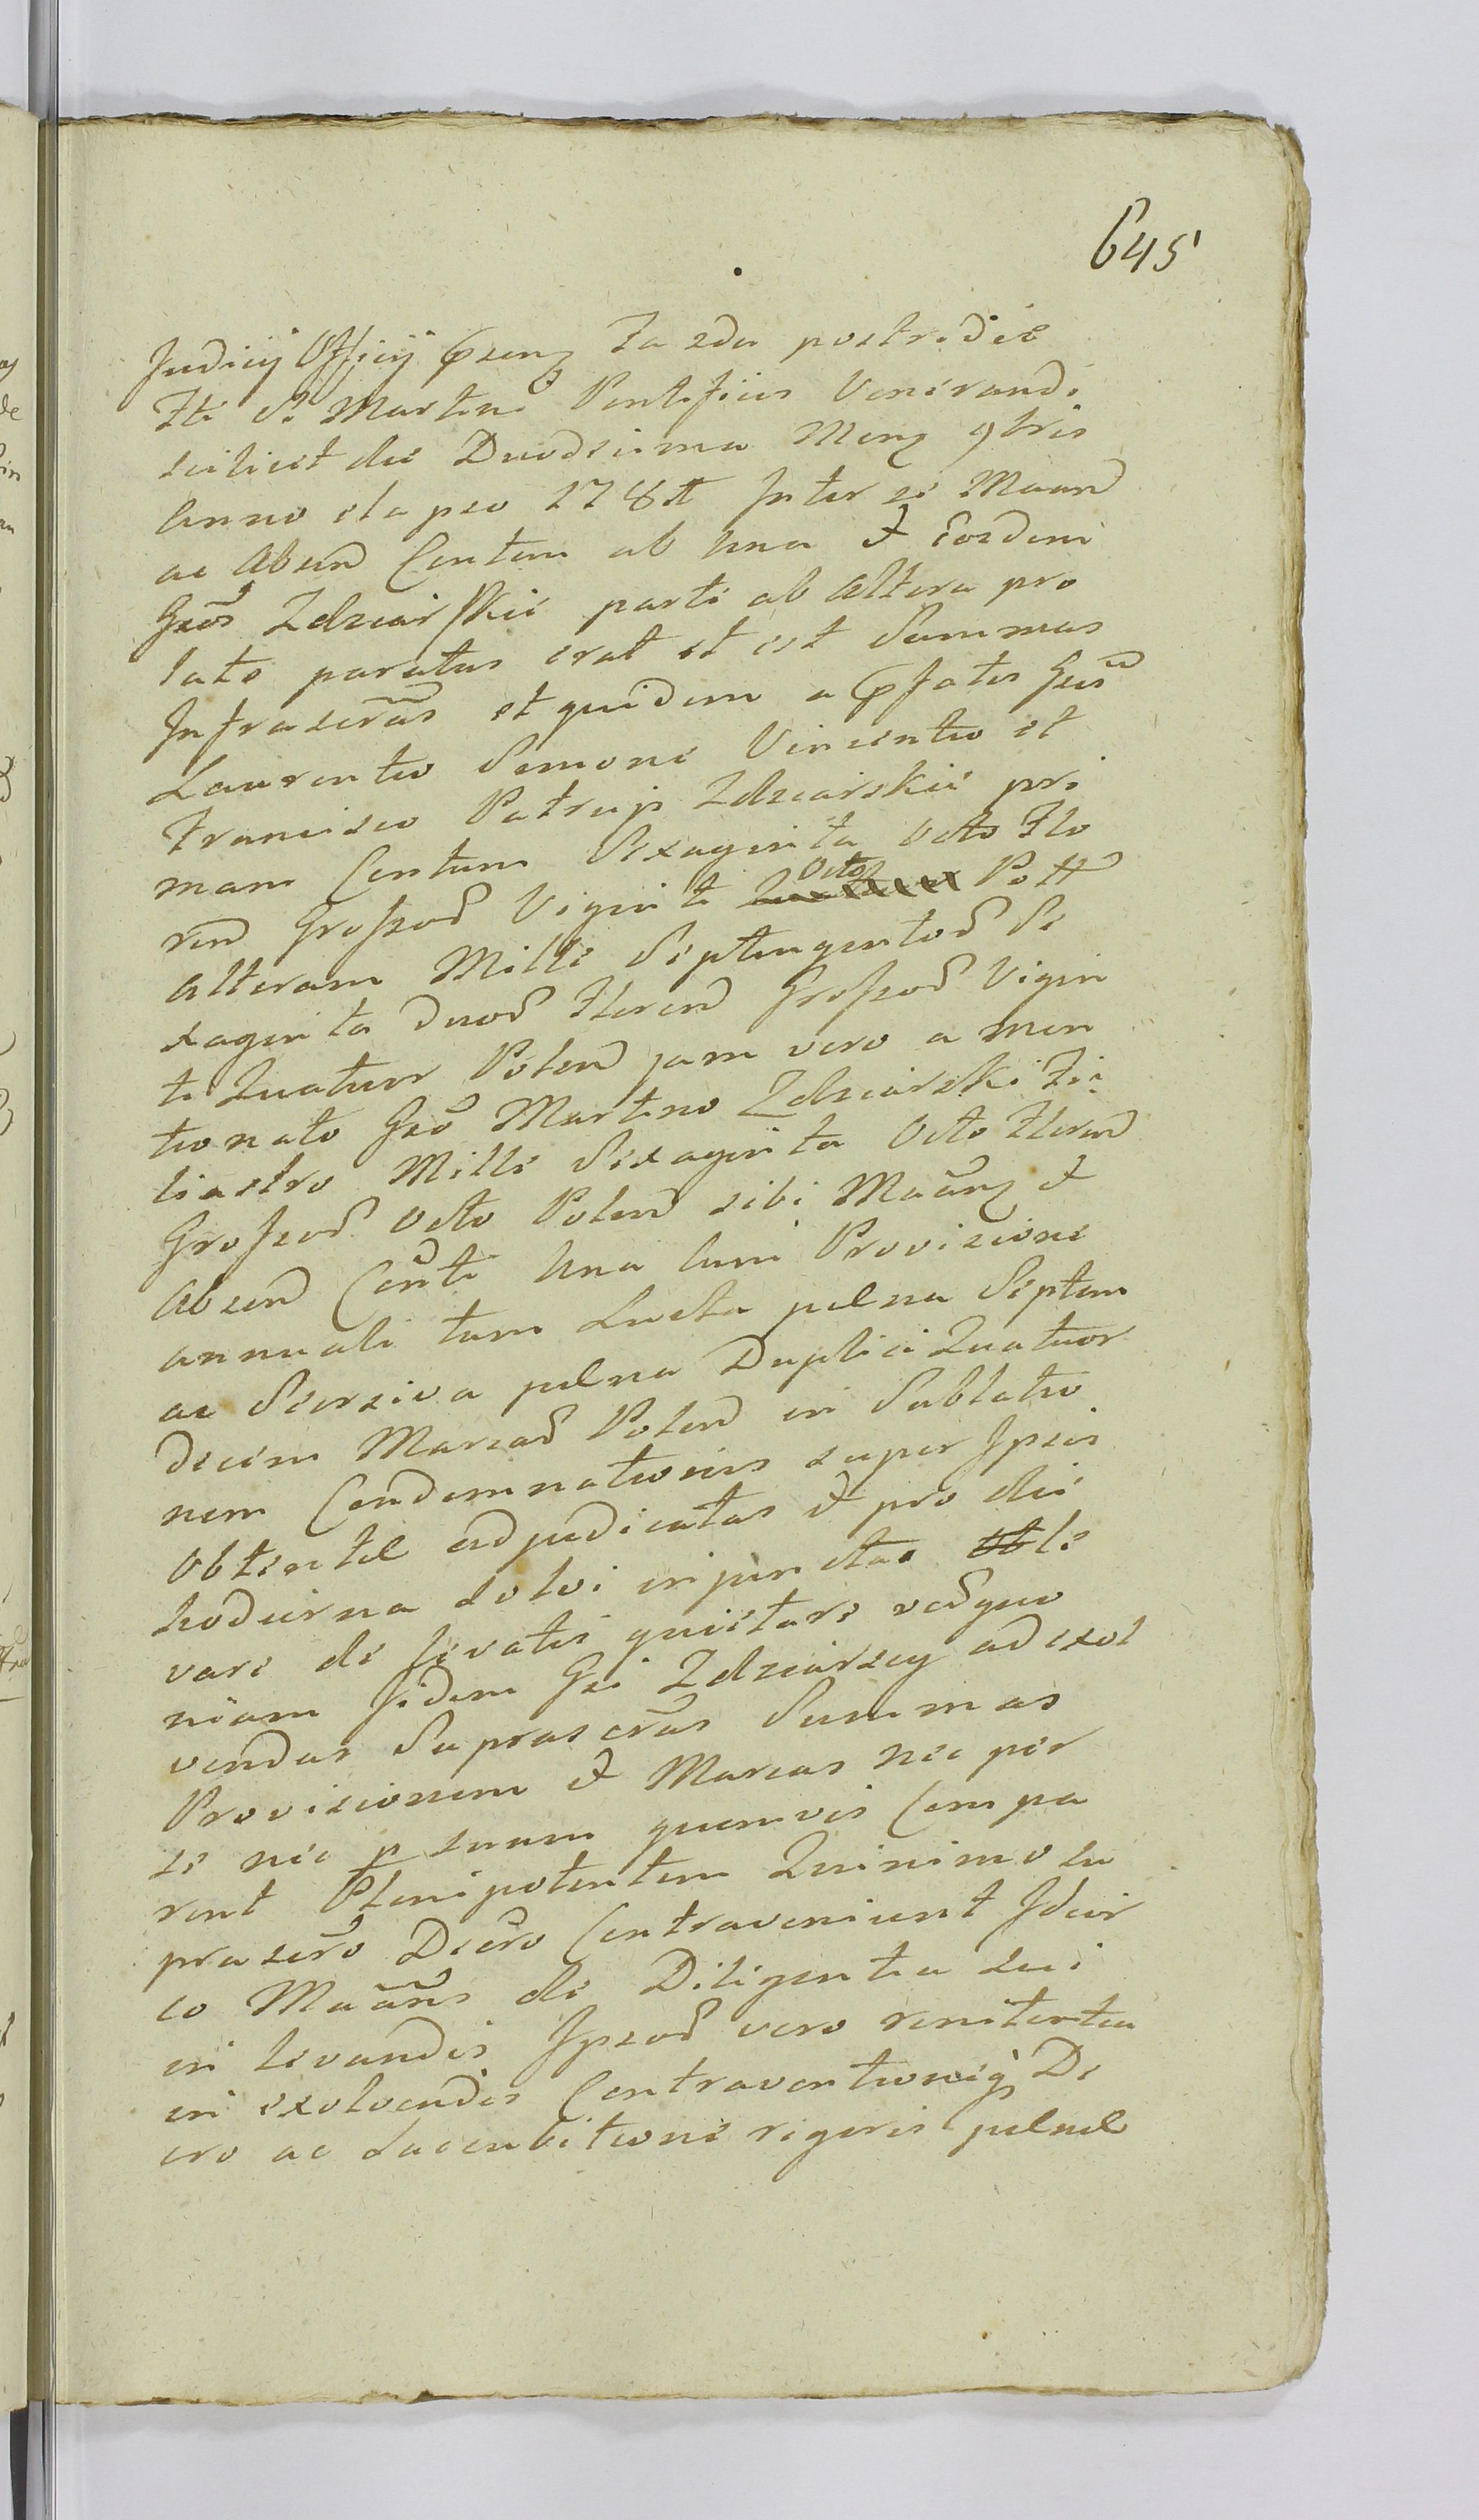 645
Judicij Officij Psenz Fa 2da postridie
Fti Sĩ Martini Pontificis Venerandi
scilicet die Duodecima Menz 9bris
Anno elapso 1784 Inter se Maand
ac Absend Centem ab una & eosdem
Gsõs Zdziarskie parte ab altera pro
lato paratus erat et est Summas
Infrascrãs et quidem a Pfatis Gsis
Laurentio Simone Vincentio et
Francisco Patruis Zdziarskie pri
mam Centum Sexaginta Octo Flo
ren Grossoȓ Viginti Octo Poll
Alteram Mille Septingentoȓ Se
xaginta duoȓ Floren Grossoȓ Vigin
ti Quatuor Polon jam vero a men
tionato Gsõ Martino Zdziarski Fi
liastro Mille Sexaginta Octo Floren
Grossoȓ Octo Polon sibi Maãnz &
Absen Cenñti una cum Provisione
annuali tum Lucta pulna Septem
ac Seorsiva pulna Duplici Quatuor
decim Marcaȓ Polon in Sublatio
nem Condemnationis super Ipsis
Obtentæ adjudicatas & pro die
hodierna solvi injunctas le
vare de levatis quietare vȓquo
niam Iidem Gsi Zdziarscy ad exol
vendas Suprascrãs Summas
Provisionem & Marcas nec per
se nec p suum quemvis Compa
rent Plenipotentem Quinimo su
prascrõ Decrõ Contraveniunt Idcir
co Maãns de Diligentia sui
in levandis Ipsoȓ vero renitentia
in exolvendis Contraventioneq̃ De
cro ac succubitione rigoris pulnæ